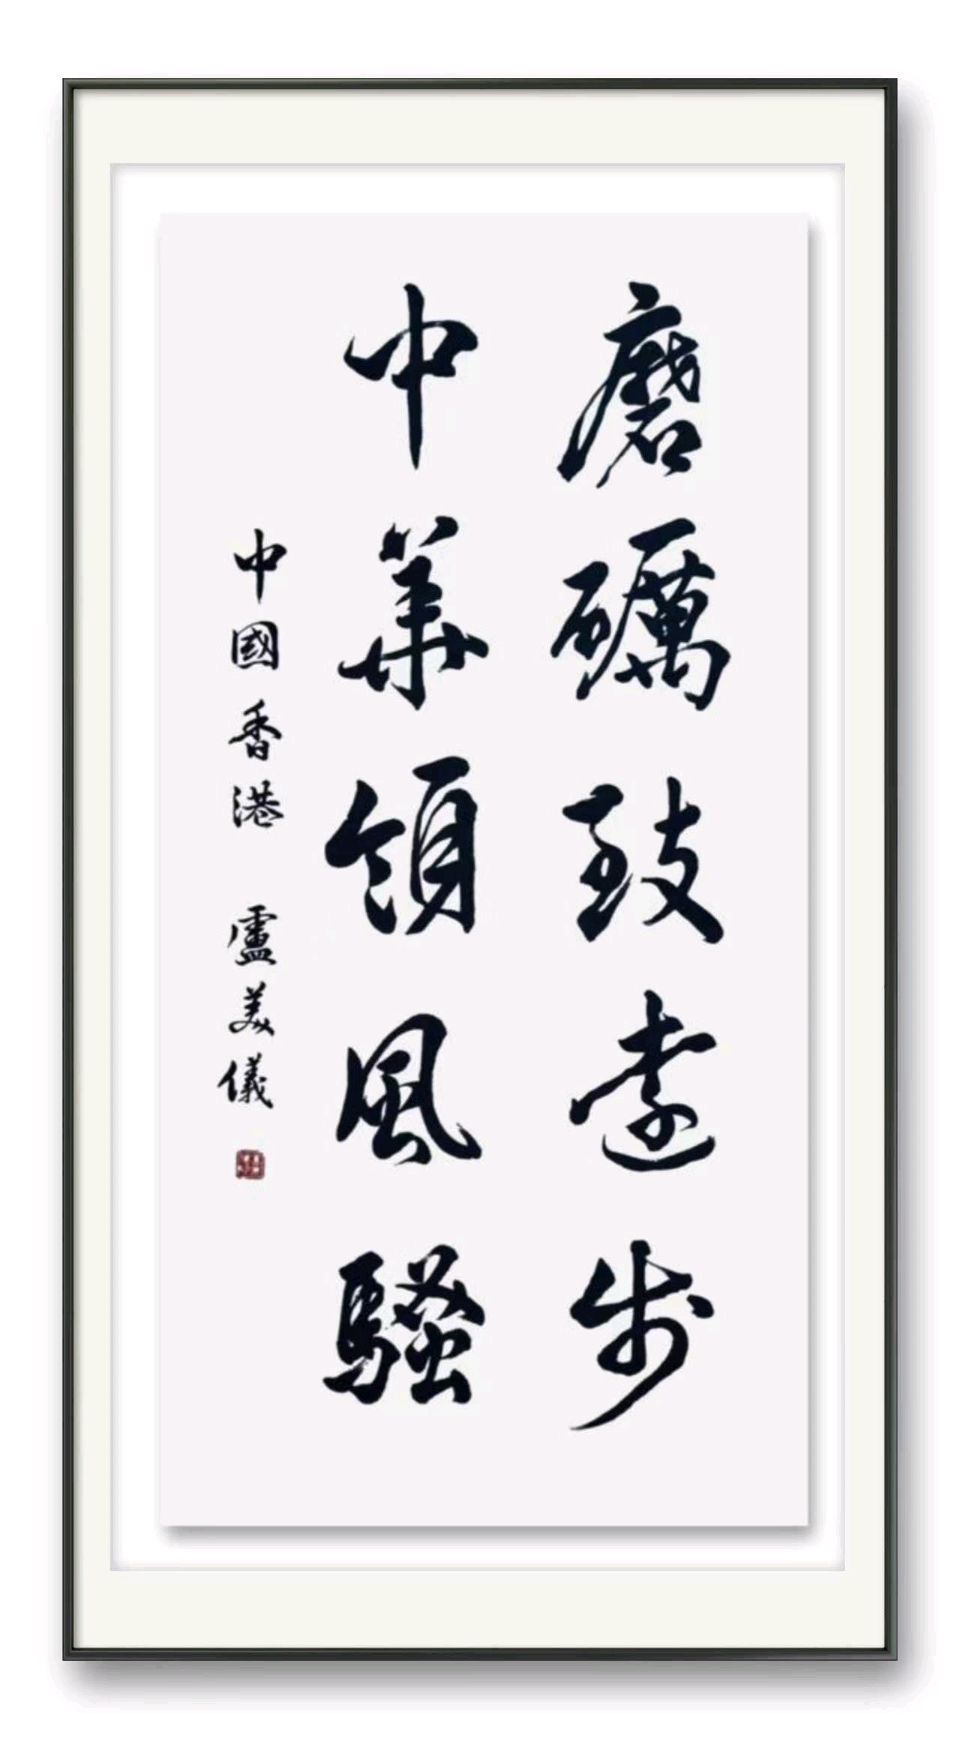 磨礪致遠步
中華領風騷
中國香港 盧美儀